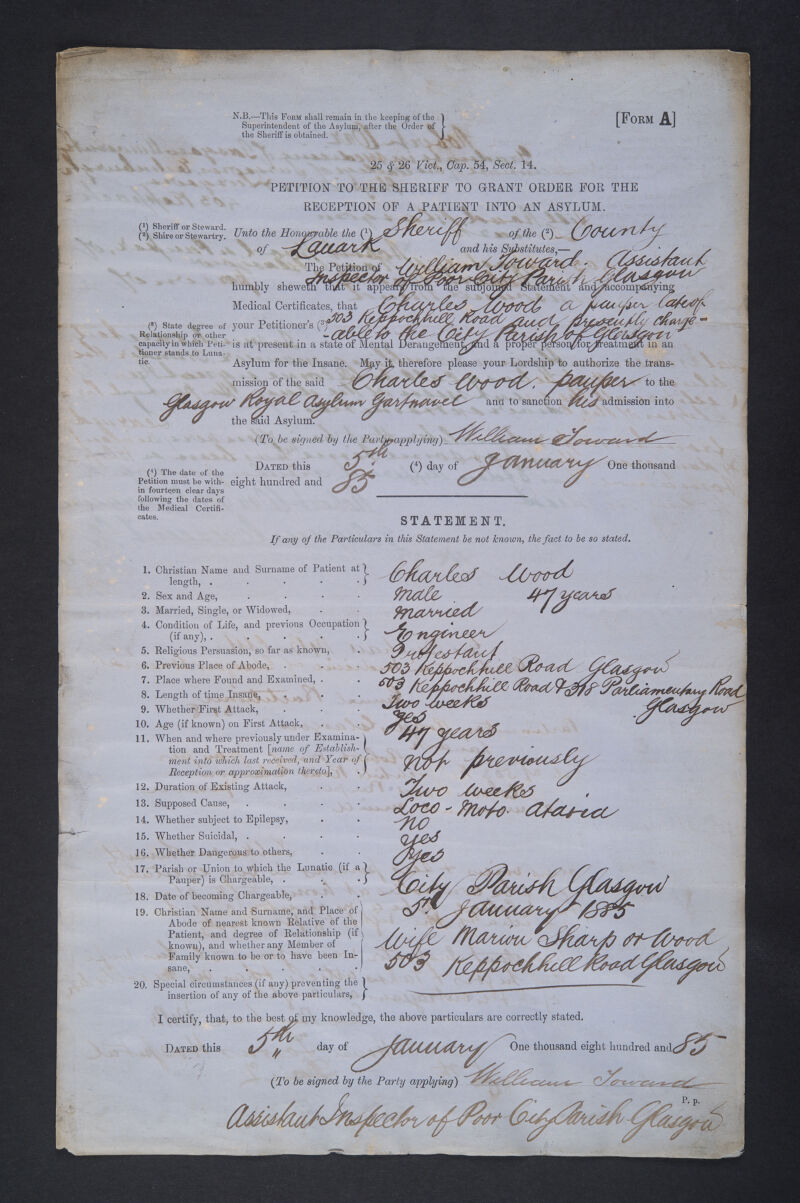 N.B.—This Form shall remain in the keeping of the
Superintendent of the Asylum, after the Order of
the Sheriff is obtained.
[Form A]
25 & 26 Vict., Cap. 54, Sect. 14.
PETITION TO THE SHERIFF TO GRANT ORDER FOR THE
RECEPTION OF A PATIENT INTO AN ASYLUM.
(1) Sheriff or Steward.
(2) Shire or Stewartry.
Unto the Honourable the (1) Sheriff of the (2) County
of Lanark and his Substitutes,—
The Petition of William Toward. Assistant
Inspector of Poor City Parish, Glasgow
humbly sheweth that it appears from the subjoined Statement and accompanying
Medical Certificates, that Charles Wood a pauper late of
(3) State degree of
Relationship or other
capacity in which Peti-
tioner stands to Luna-
tic.
your Petitioner's (3) 503 Keppochhill Road and presently charge-
-able to the City Parish of Glasgow
is at present in a state of Mental Derangement, and a proper person for treatment in an
Asylum for the Insane. May it therefore please your Lordship to authorize the trans-
mission of the said Charles Wood. pauper to the
Glasgow Royal Asylum Gartnavel and to sanction his admission into
the said Asylum.
(To be signed by the Party applying) William Toward
Dated this 5th (4) day of January One thousand
eight hundred and 85
(4) The date of the
Petition must be with-
in fourteen clear days
following the dates of
the Medical Certifi-
cates.
STATEMENT.
If any of the Particulars in this Statement be not known, the fact to be so stated.
1. Christian Name and Surname of Patient at
length, . Charles Wood
2. Sex and Age, Male 47 years
3. Married, Single, or Widowed, married
4. Condition of Life, and previous Occupation
(if any), . Engineer
5. Religious Persuasion, so far as known, Protestant
6. Previous Place of Abode, 503 Keppochhill Road Glasgow
7. Place where Found and Examined, 503 Keppochhill Road & 318 Parliamentary Road
Glasgow
8. Length of time Insane, Two weeks
9. Whether First Attack, yes
10. Age (if known) on First Attack, 47 years
11. When and where previously under Examina-
tion and Treatment [name of Establish-
ment into which last received, and Year of
Reception or approximation thereto], not previously
12. Duration of Existing Attack, Two weeks
13. Supposed Cause, Loco-Moto Ataxia
14. Whether subject to Epilepsy, no
15. Whether Suicidal, yes
16. Whether Dangerous to others, yes
17. Parish or Union to which the Lunatic (if a
Pauper) is Chargeable, City Parish Glasgow
18. Date of becoming Chargeable, 5th January 1885
19. Christian Name and Surname, and Place of
Abode of nearest known Relative of the
Patient, and degree of Relationship (if
known), and whether any Member of
Family known to be or to have been In-
sane, Wife Marion Sharp or Wood
503 Keppochhill Road Glasgow
20. Special circumstances (if any) preventing the
insertion of any of the above particulars,
I certify, that, to the best of my knowledge, the above particulars are correctly stated.
Dated this 5th day of January One thousand eight hundred and 85
(To be signed by the Party applying) William Toward
P. p.
Assistant Inspector of Poor City Parish Glasgow